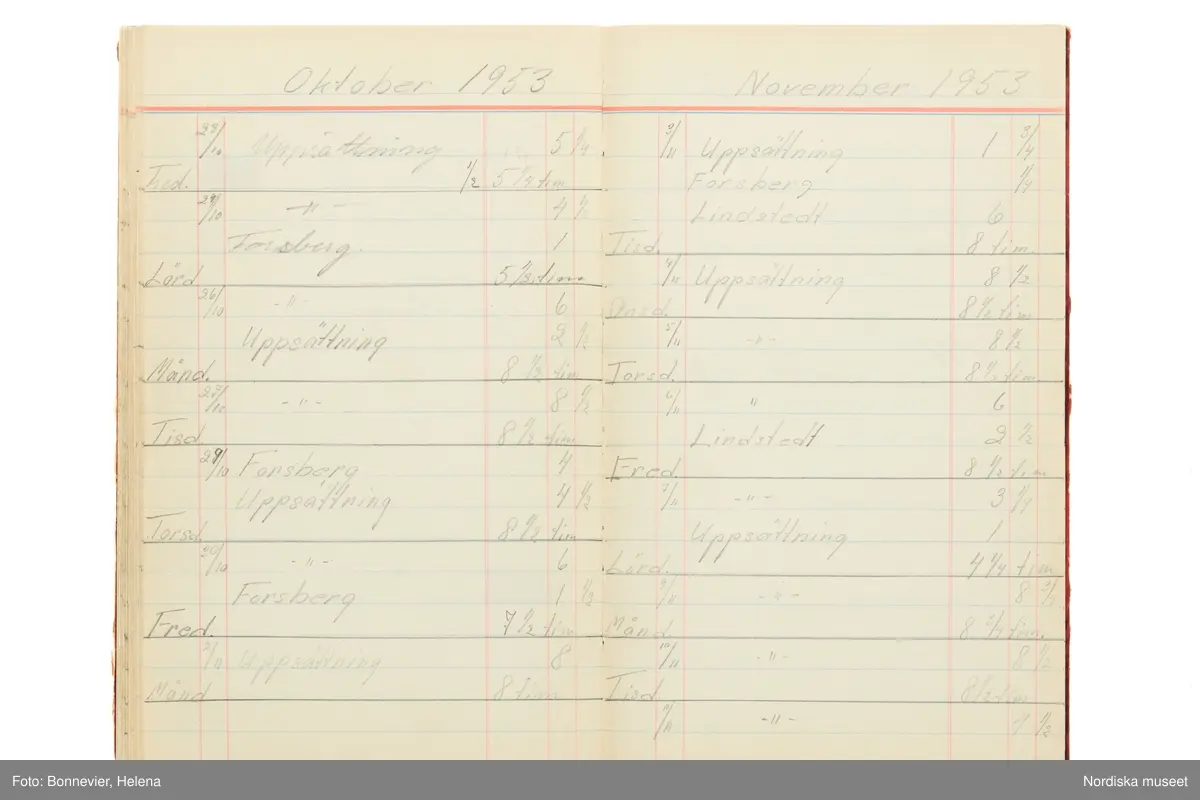 Oktober 1953
23/10 Uppsättning 5 1/4
Fred. 1/2 5 1/4 tim
24/10 -"- 4 1/2
Forsberg. 1
Lörd 5 1/2 tim
26/10 -"- 6
Uppsättning 2 1/2
Månd. 8 1/2 tim
27/10 -"- 8 1/2
Tisd. 8 1/2 tim
29/10 Forsberg 4
Uppsättning 4 1/2
Torsd. 8 1/2 tim
30/10 -"- 6
Forsberg 1 1/2
Fred. 7 1/2 tim
2/11 Uppsättning 8
Månd 8 tim
November 1953
3/11 Uppsättning 1 3/4
Forsberg 1/4
Lindstedt 6
Tisd. 8 tim.
4/11 Uppsättning 8 1/2
Onsd. 8 1/2 tim
5/11 -"- 8 1/2
Torsd. 8 1/2 tim
6/11 " 6
Lindstedt 2 1/2
Fred. 8 1/2 tim
7/11 -"- 3 1/4
Uppsättning 1
Lörd. 4 1/4 tim
9/11 -"- 8
Månd. 8 tim.
10/11 -"- 8 1/2
Tisd. 8 1/2 tim
11/11 -"- 1/2
Foto: Bonnevier, Helena
Nordiska museet